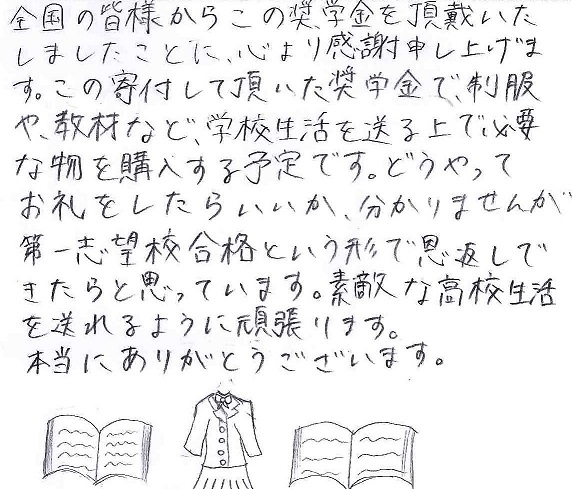 全国の皆様からこの奨学金を頂戴いた
しましたことに、心より感謝申し上げま
す。この寄付して頂いた奨学金で、制服
や、教材など、学校生活を送る上で必要
な物を購入する予定です。どうやって
お礼をしたらいいか、分かりませんが
第一志望校合格という形で恩返しで
きたらと思っています。素敵な高校生活
を送れるように頑張ります。
本当にありがとうございます。